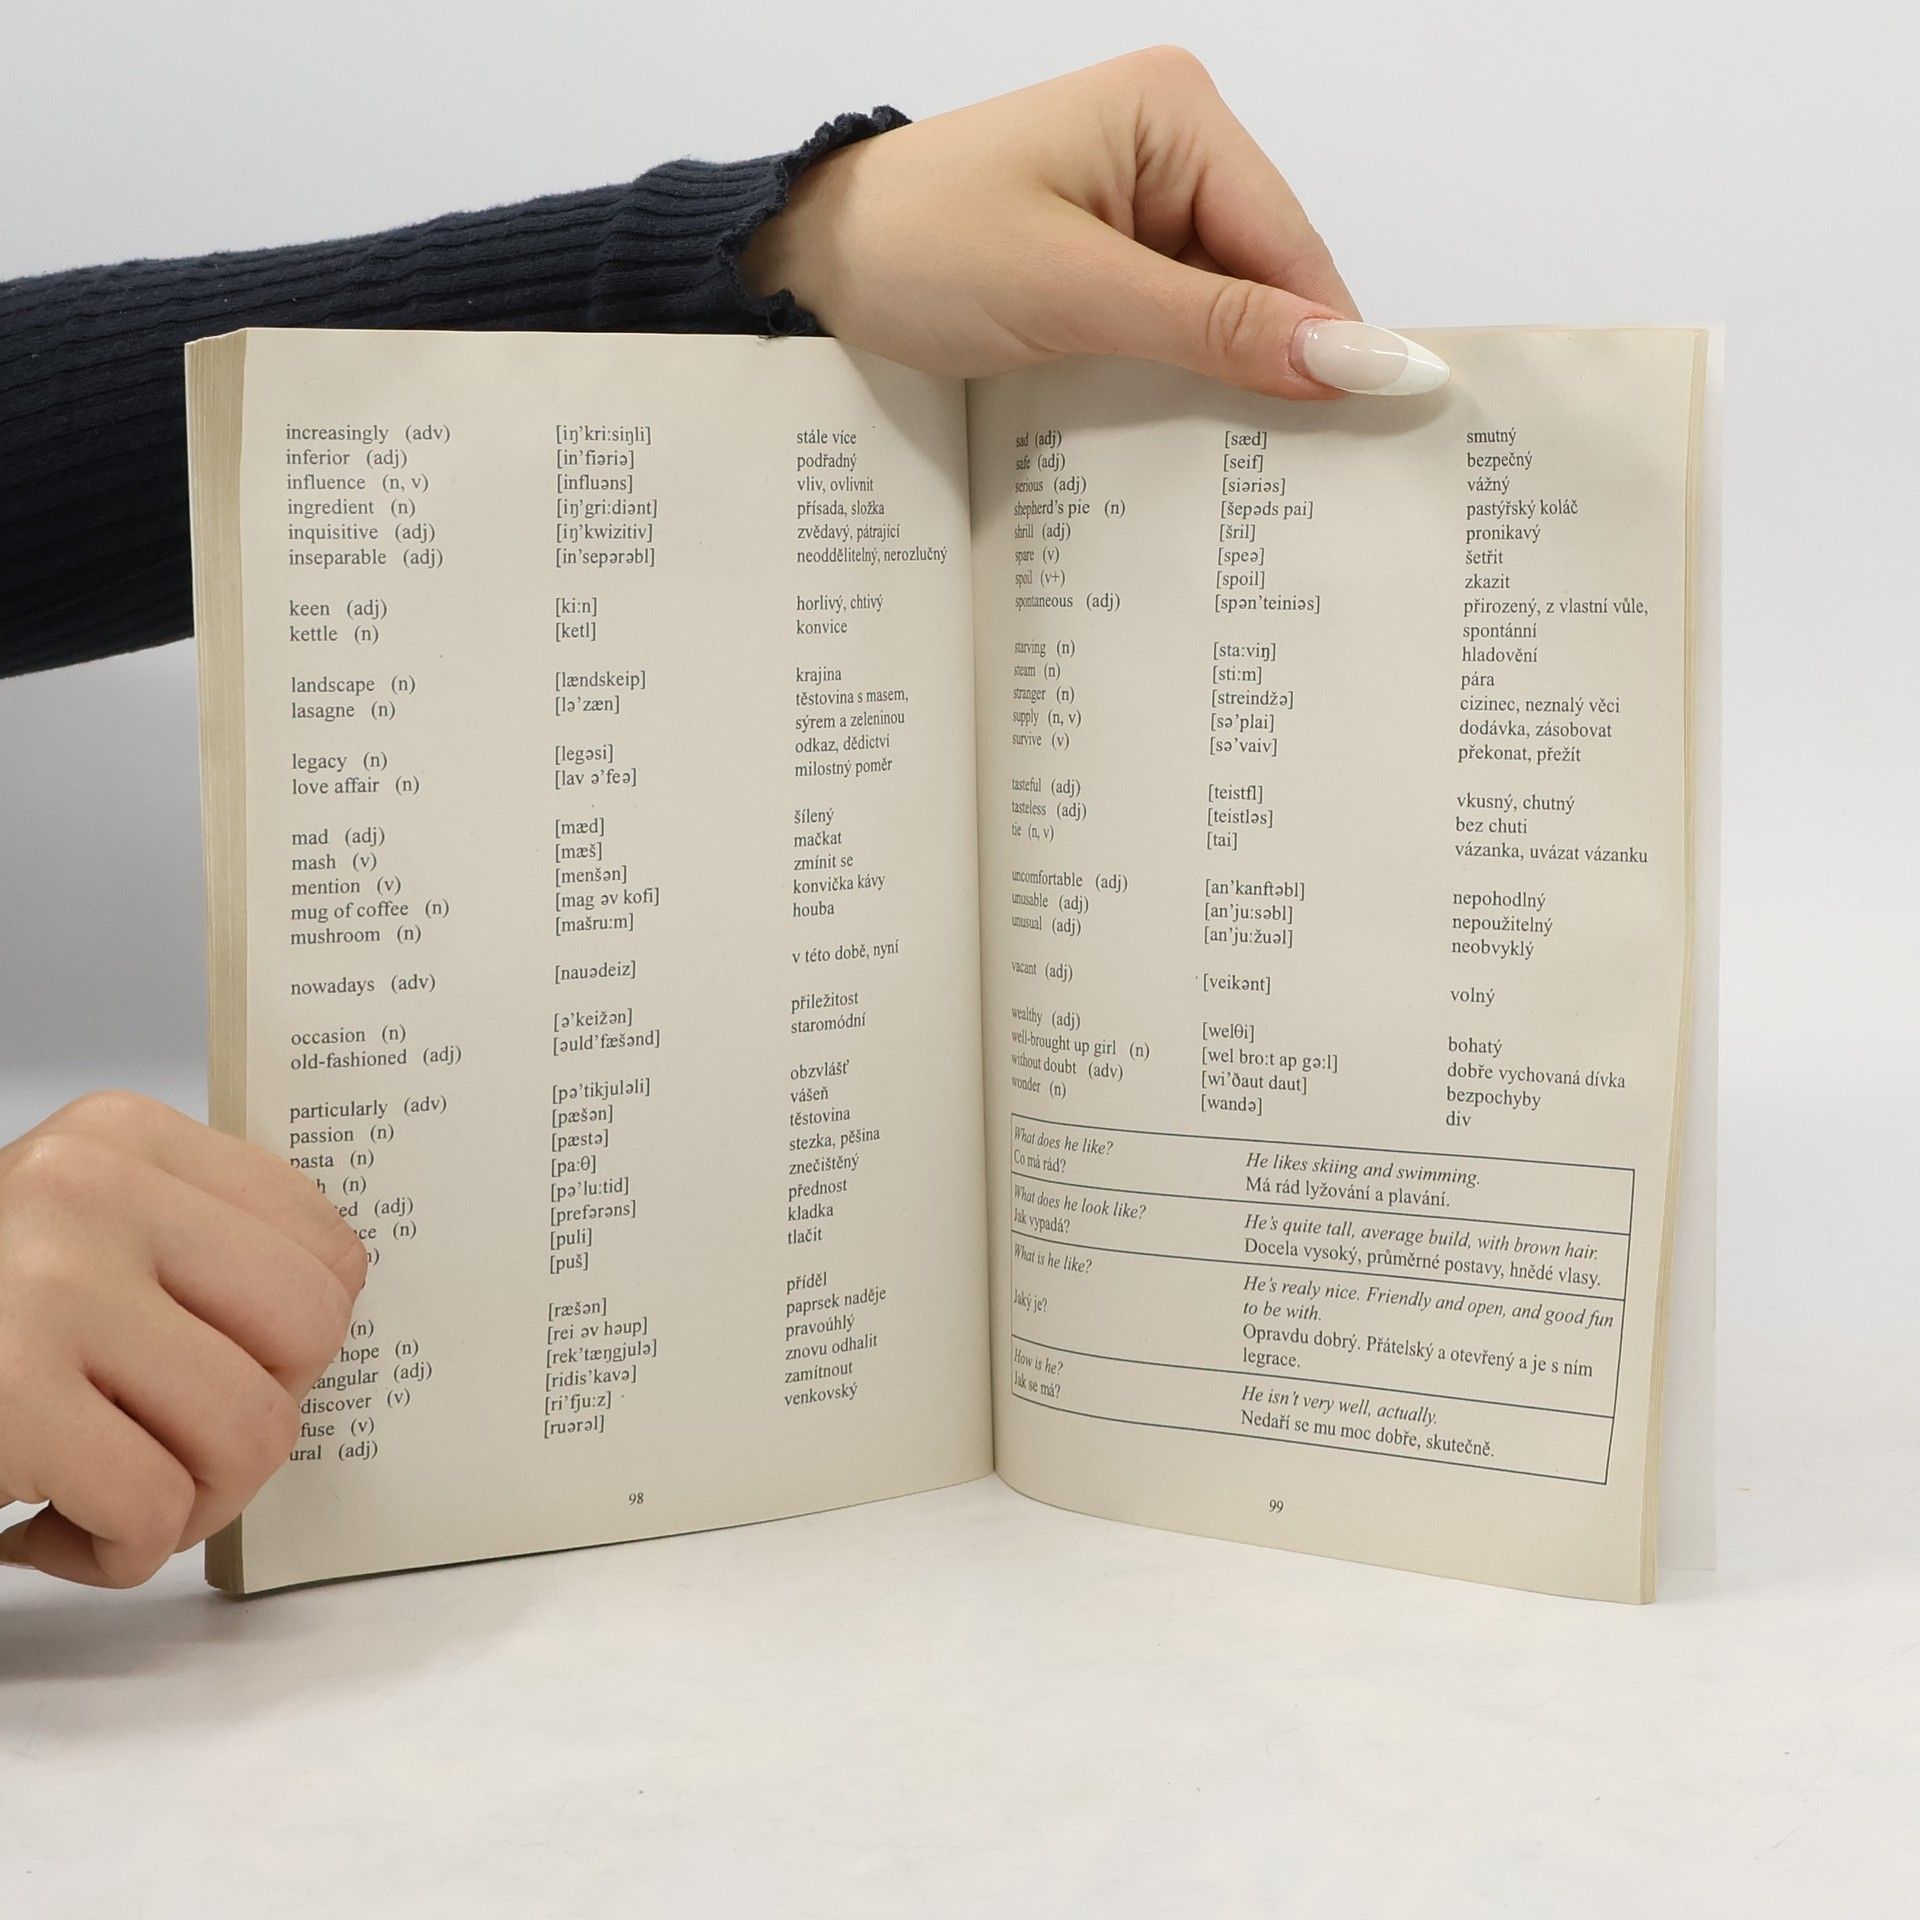 increasingly (adv) [iŋ’kri:siŋli] stále více
inferior (adj) [in’fiəriə] podřadný
influence (n, v) [influəns] vliv, ovlivnit
ingredient (n) [iŋ’gri:diənt] přísada, složka
inquisitive (adj) [iŋ’kwizitiv] zvědavý, pátrající
inseparable (adj) [in’sepərəbl] neoddělitelný, nerozlučný
keen (adj) [ki:n] horlivý, chtivý
kettle (n) [ketl] konvice
landscape (n) [lændskeip] krajina
lasagne (n) [lə’zæn] těstovina s masem,
sýrem a zeleninou
legacy (n) [legəsi] odkaz, dědictví
love affair (n) [lav ə’feə] milostný poměr
mad (adj) [mæd] šílený
mash (v) [mæš] mačkat
mention (v) [menšən] zmínit se
mug of coffee (n) [mag əv kofi] konvička kávy
mushroom (n) [mašru:m] houba
nowadays (adv) [nauədeiz] v této době, nyní
occasion (n) [ə’keižən] příležitost
old-fashioned (adj) [əuld’fæšənd] staromódní
particularly (adv) [pə’tikjuləli] obzvlášť
passion (n) [pæšən] vášeň
pasta (n) [pæstə] těstovina
h (n) [pa:θ] stezka, pěšina
ted (adj) [pə’lu:tid] znečištěný
ce (n) [prefərəns] přednost
n) [puli] kladka
[puš] tlačit
(n) [ræšən] příděl
hope (n) [rei əv həup] paprsek naděje
tangular (adj) [rek’tæŋgjulə] pravoúhlý
discover (v) [ridis’kavə] znovu odhalit
fuse (v) [ri’fju:z] zamítnout
ural (adj) [ruərəl] venkovský
98
sad (adj) [sæd] smutný
safe (adj) [seif] bezpečný
serious (adj) [siəriəs] vážný
shepherd’s pie (n) [šepəds pai] pastýřský koláč
shrill (adj) [šril] pronikavý
spare (v) [speə] šetřit
spoil (v+) [spoil] zkazit
spontaneous (adj) [spən’teiniəs] přirozený, z vlastní vůle,
spontánní
starving (n) [sta:viŋ] hladovění
steam (n) [sti:m] pára
stranger (n) [streindžə] cizinec, neznalý věci
supply (n, v) [sə’plai] dodávka, zásobovat
survive (v) [sə’vaiv] překonat, přežít
tasteful (adj) [teistfl] vkusný, chutný
tasteless (adj) [teistləs] bez chuti
tie (n, v) [tai] vázanka, uvázat vázanku
uncomfortable (adj) [an’kanftəbl] nepohodlný
unusable (adj) [an’ju:səbl] nepoužitelný
unusual (adj) [an’ju:žuəl] neobvyklý
vacant (adj) [veikənt] volný
wealthy (adj) [welθi] bohatý
well-brought up girl (n) [wel bro:t ap gə:l] dobře vychovaná dívka
without doubt (adv) [wi’ðaut daut] bezpochyby
wonder (n) [wandə] div
What does he like? He likes skiing and swimming.
Co má rád? Má rád lyžování a plavání.
What does he look like? He’s quite tall, average build, with brown hair.
Jak vypadá? Docela vysoký, průměrné postavy, hnědé vlasy.
What is he like? He’s realy nice. Friendly and open, and good fun
to be with.
Jaký je? Opravdu dobrý. Přátelský a otevřený a je s ním
legrace.
How is he? He isn’t very well, actually.
Jak se má? Nedaří se mu moc dobře, skutečně.
99